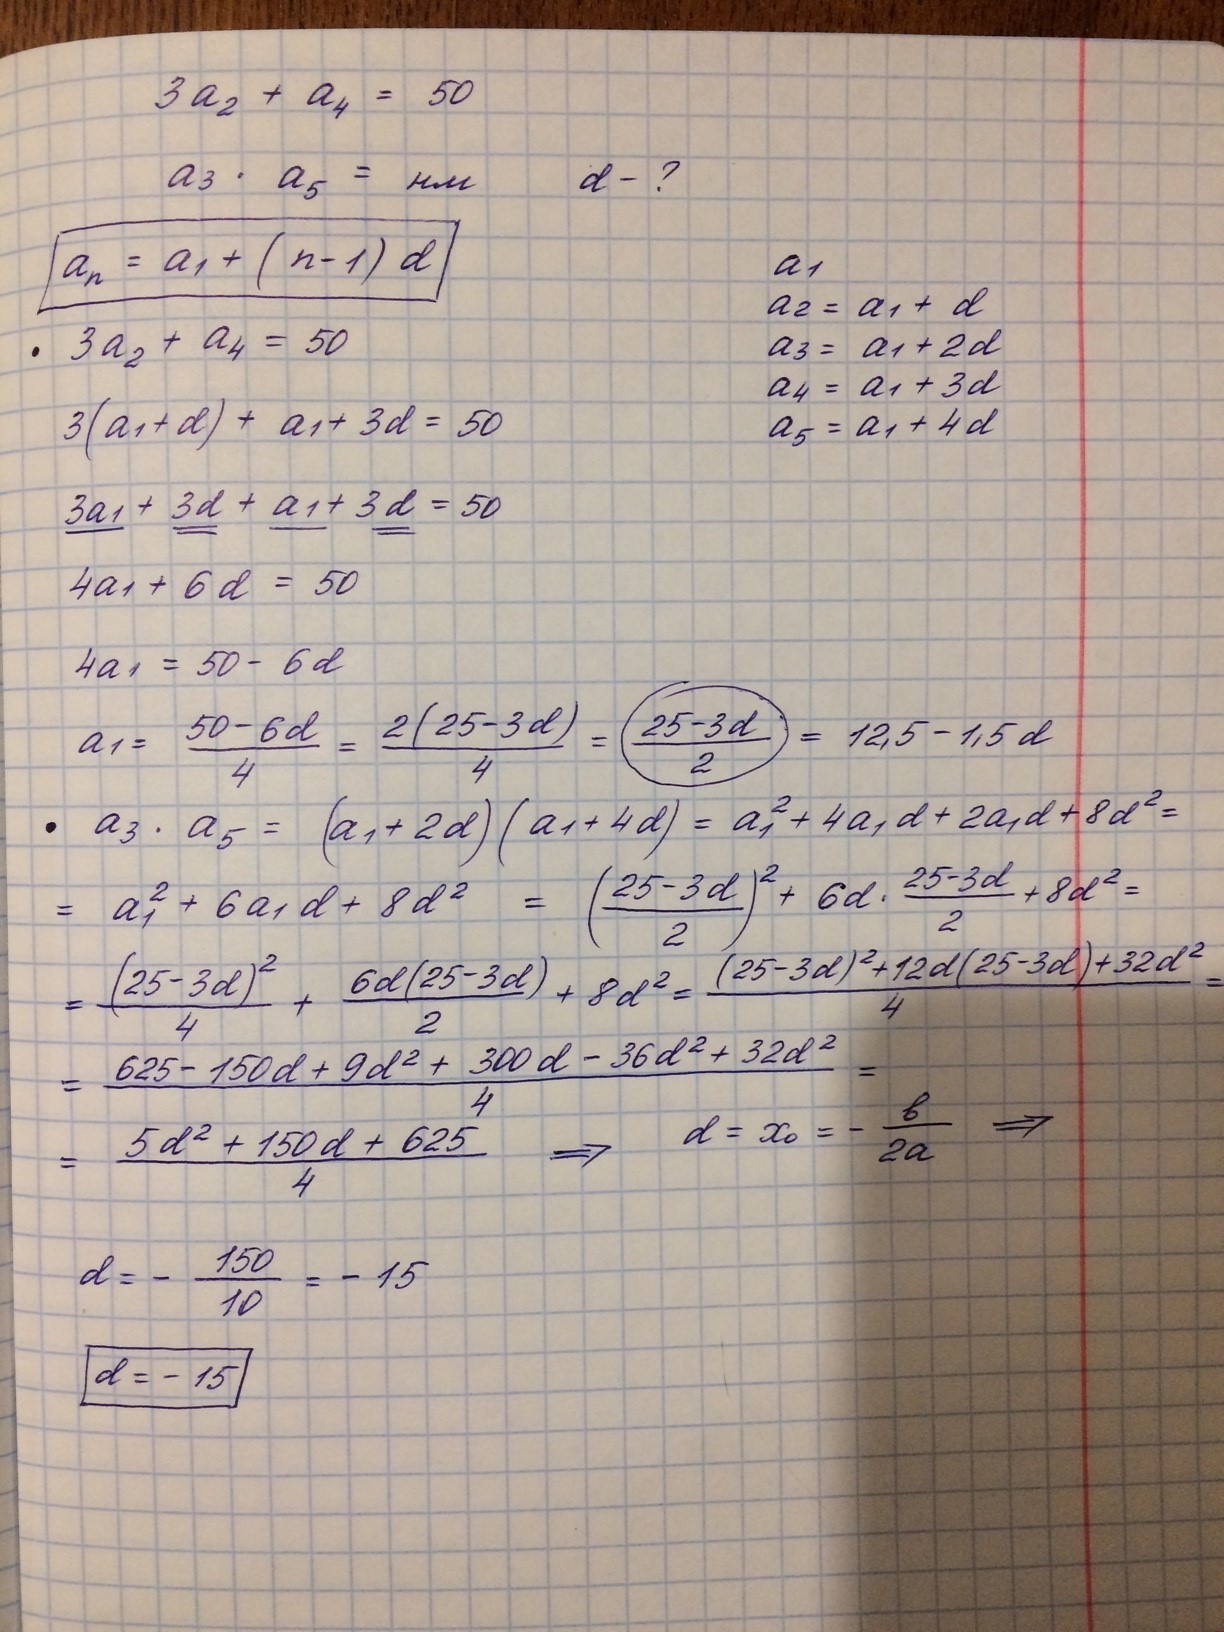 3a₂ + a₄ = 50
a₃ · a₅ = нм d - ?
aₙ = a₁ + (n-1) d
a₁
a₂ = a₁ + d
a₃ = a₁ + 2d
a₄ = a₁ + 3d
a₅ = a₁ + 4d
• 3a₂ + a₄ = 50
3(a₁+d) + a₁ + 3d = 50
3a₁ + 3d + a₁ + 3d = 50
4a₁ + 6d = 50
4a₁ = 50 - 6d
a₁ = (50-6d)/4 = 2(25-3d)/4 = (25-3d)/2 = 12,5 - 1,5d
• a₃ · a₅ = (a₁+2d)(a₁+4d) = a₁² + 4a₁d + 2a₁d + 8d² =
= a₁² + 6a₁d + 8d² = ((25-3d)/2)² + 6d · (25-3d)/2 + 8d² =
= (25-3d)²/4 + 6d(25-3d)/2 + 8d² = ((25-3d)²+12d(25-3d)+32d²)/4 =
= (625 - 150d + 9d² + 300d - 36d² + 32d²)/4 =
= (5d² + 150d + 625)/4 ⟹ d = x₀ = - в/2a ⟹
d = - 150/10 = - 15
d = - 15